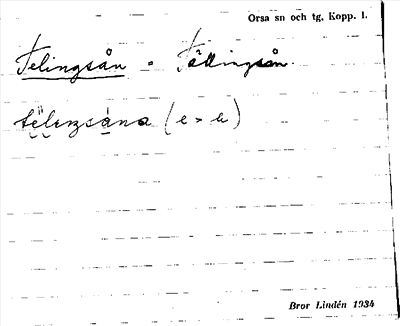 Orsa sn och tg, Kopp. l.
Telingsån = Tällingsån.
(e > ä)
Bror Lindén 1934